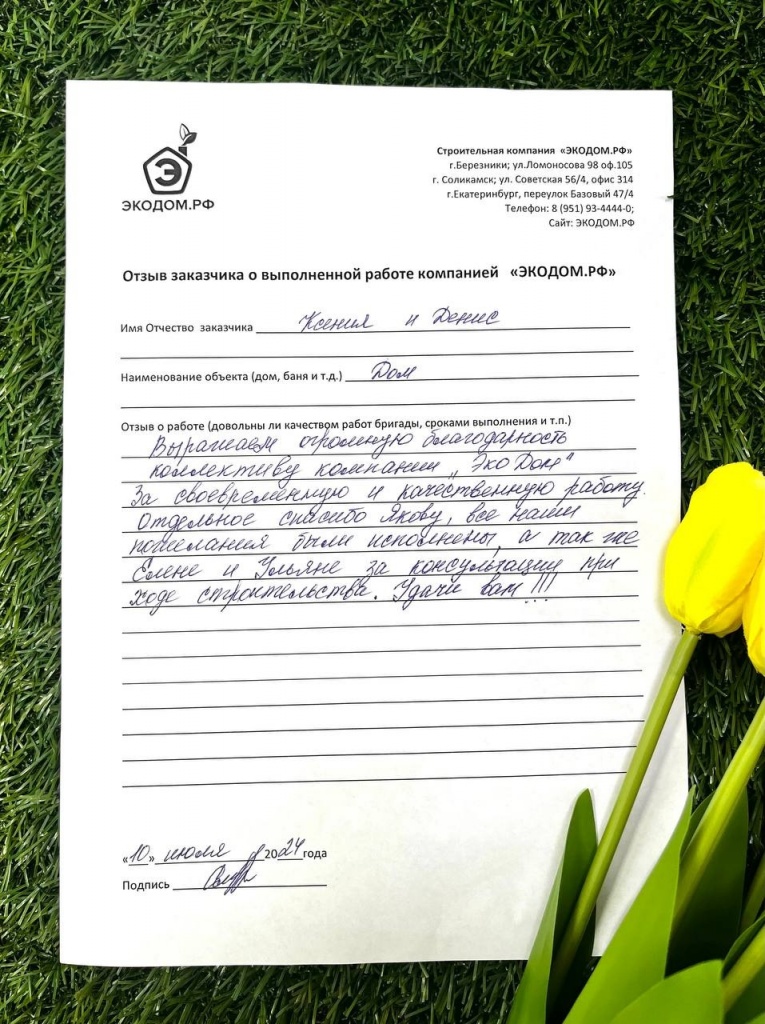 Э
ЭКОДОМ.РФ
Строительная компания «ЭКОДОМ.РФ»
г.Березники; ул.Ломоносова 98 оф.105
г. Соликамск; ул. Советская 56/4, офис 314
г.Екатеринбург, переулок Базовый 47/4
Телефон: 8 (951) 93-4444-0;
Сайт: ЭКОДОМ.РФ
Отзыв заказчика о выполненной работе компанией «ЭКОДОМ.РФ»
Имя Отчество заказчика Ксения и Денис
Наименование объекта (дом, баня и т.д.) Дом
Отзыв о работе (довольны ли качеством работ бригады, сроками выполнения и т.п.)
Выражаем огромную благодарность
коллективу компании „Эко Дом"
За своевременную и качественную работу.
Отдельное спасибо Якову, все наши
пожелания были исполнены, а так же
Елене и Ульяне за консультации при
ходе строительства. Удачи вам!!!
«10» июля 2024 года
Подпись